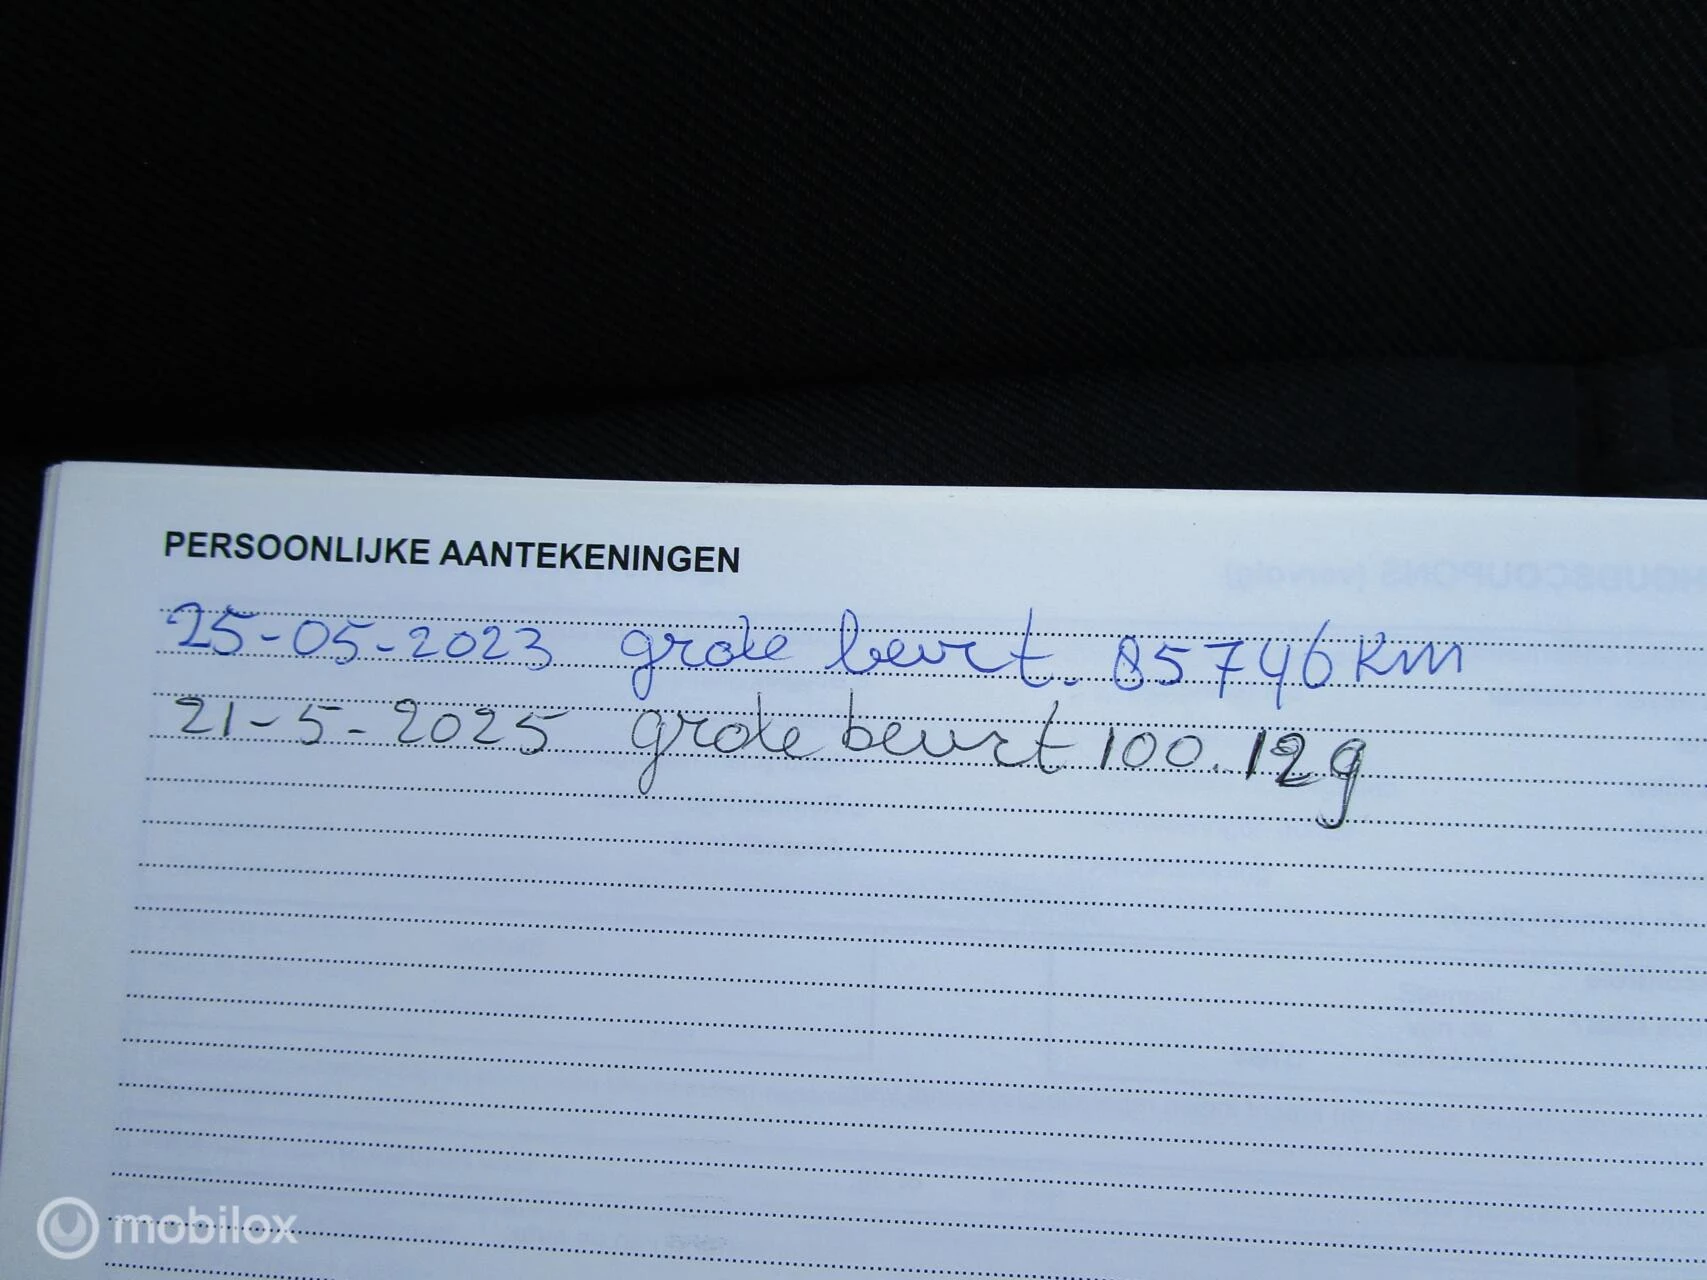 PERSOONLIJKE AANTEKENINGEN
25-05-2023 grote beurt. 85746 km
21-5-2025 grote beurt 100.129
mobilox